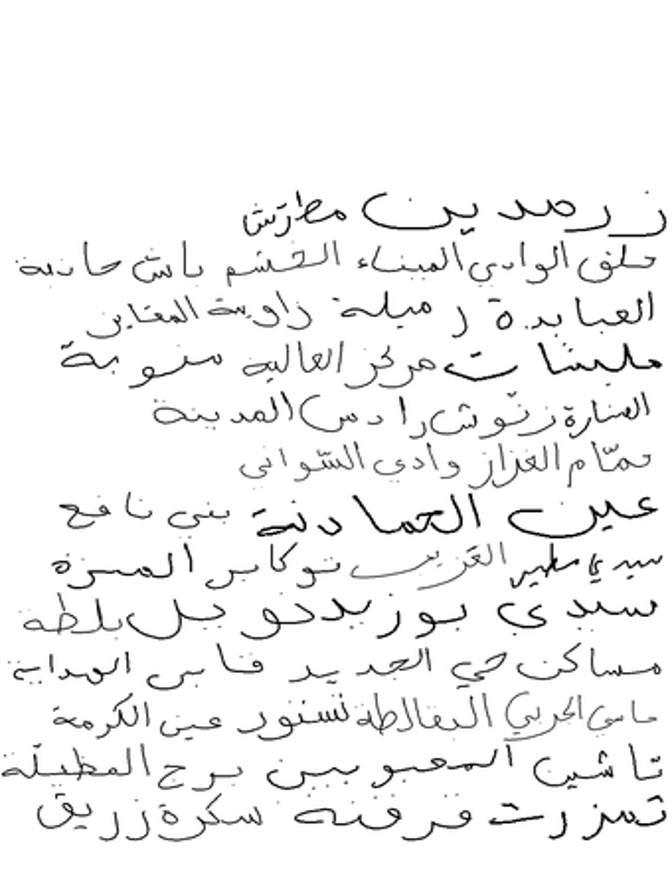 زرمدين مطرش
حلق الوادي الميناء الخشم باش حانبة
العبابدة رميلة زاوية المقايز
مليشات مركز العالية منوبة
المنارة زنّوش رادس المدينة
حمّام الغزاز وادي السّواني
عين الحمادنة بني نافع
سيدي مطير الغريب توكابر المبرة
سيدي بوزيد نوبل بلطة
مساكن حي الجديد قابس الهداية
ماسي الحربي البقالطة تستور عين الكرمة
تاشين المعبوبين برج المظيلّة
تمزرت قرقنة سكرة زريق